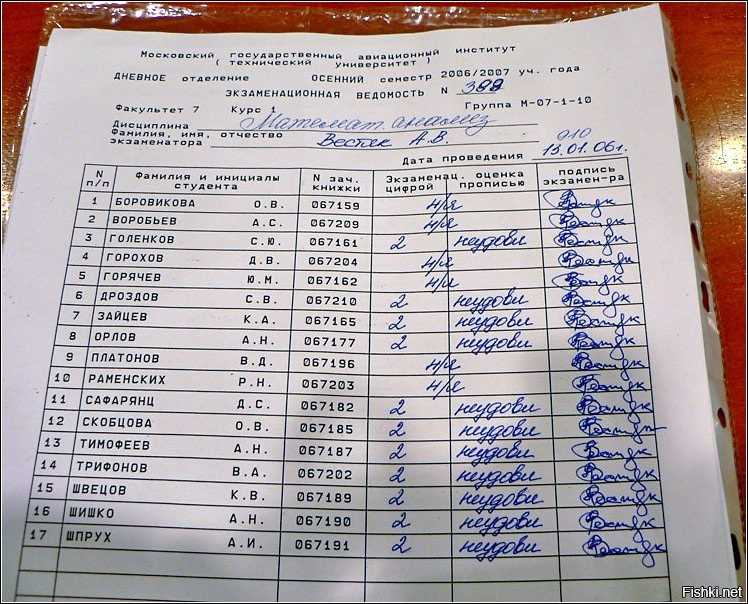 Московский государственный авиационный институт
( технический университет )
ДНЕВНОЕ отделение ОСЕННИЙ семестр 2006/2007 уч. года
ЭКЗАМЕНАЦИОННАЯ ВЕДОМОСТЬ N 388
Факультет 7 Курс 1 Группа М-07-1-10
Дисциплина Математ. анализ
Фамилия, имя, отчество
экзаменатора Вестяк А.В. 910
Дата проведения 13.01.06г.
N п/п Фамилия и инициалы студента N зач. книжки Экзаменац. оценка цифрой прописью подпись экзамен-ра
1 БОРОВИКОВА О.В. 067159 н/я
2 ВОРОБЬЕВ А.С. 067209 н/я
3 ГОЛЕНКОВ С.Ю. 067161 2 неудовл
4 ГОРОХОВ Д.В. 067204 н/я
5 ГОРЯЧЕВ Ю.М. 067162 н/я
6 ДРОЗДОВ С.В. 067210 2 неудовл
7 ЗАЙЦЕВ К.А. 067165 2 неудовл
8 ОРЛОВ А.Н. 067177 2 неудовл
9 ПЛАТОНОВ В.Д. 067196 н/я
10 РАМЕНСКИХ Р.Н. 067203 н/я
11 САФАРЯНЦ Д.С. 067182 2 неудовл
12 СКОБЦОВА О.В. 067185 2 неудовл
13 ТИМОФЕЕВ А.Н. 067187 2 неудовл
14 ТРИФОНОВ В.А. 067202 2 неудовл
15 ШВЕЦОВ К.В. 067189 2 неудовл
16 ШИШКО А.Н. 067190 2 неудовл
17 ШПРУХ А.И. 067191 2 неудовл
Fishki.net